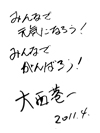 みんなで
元気になろう!
みんなで
がんばろう!
大西巻一
2011.4.